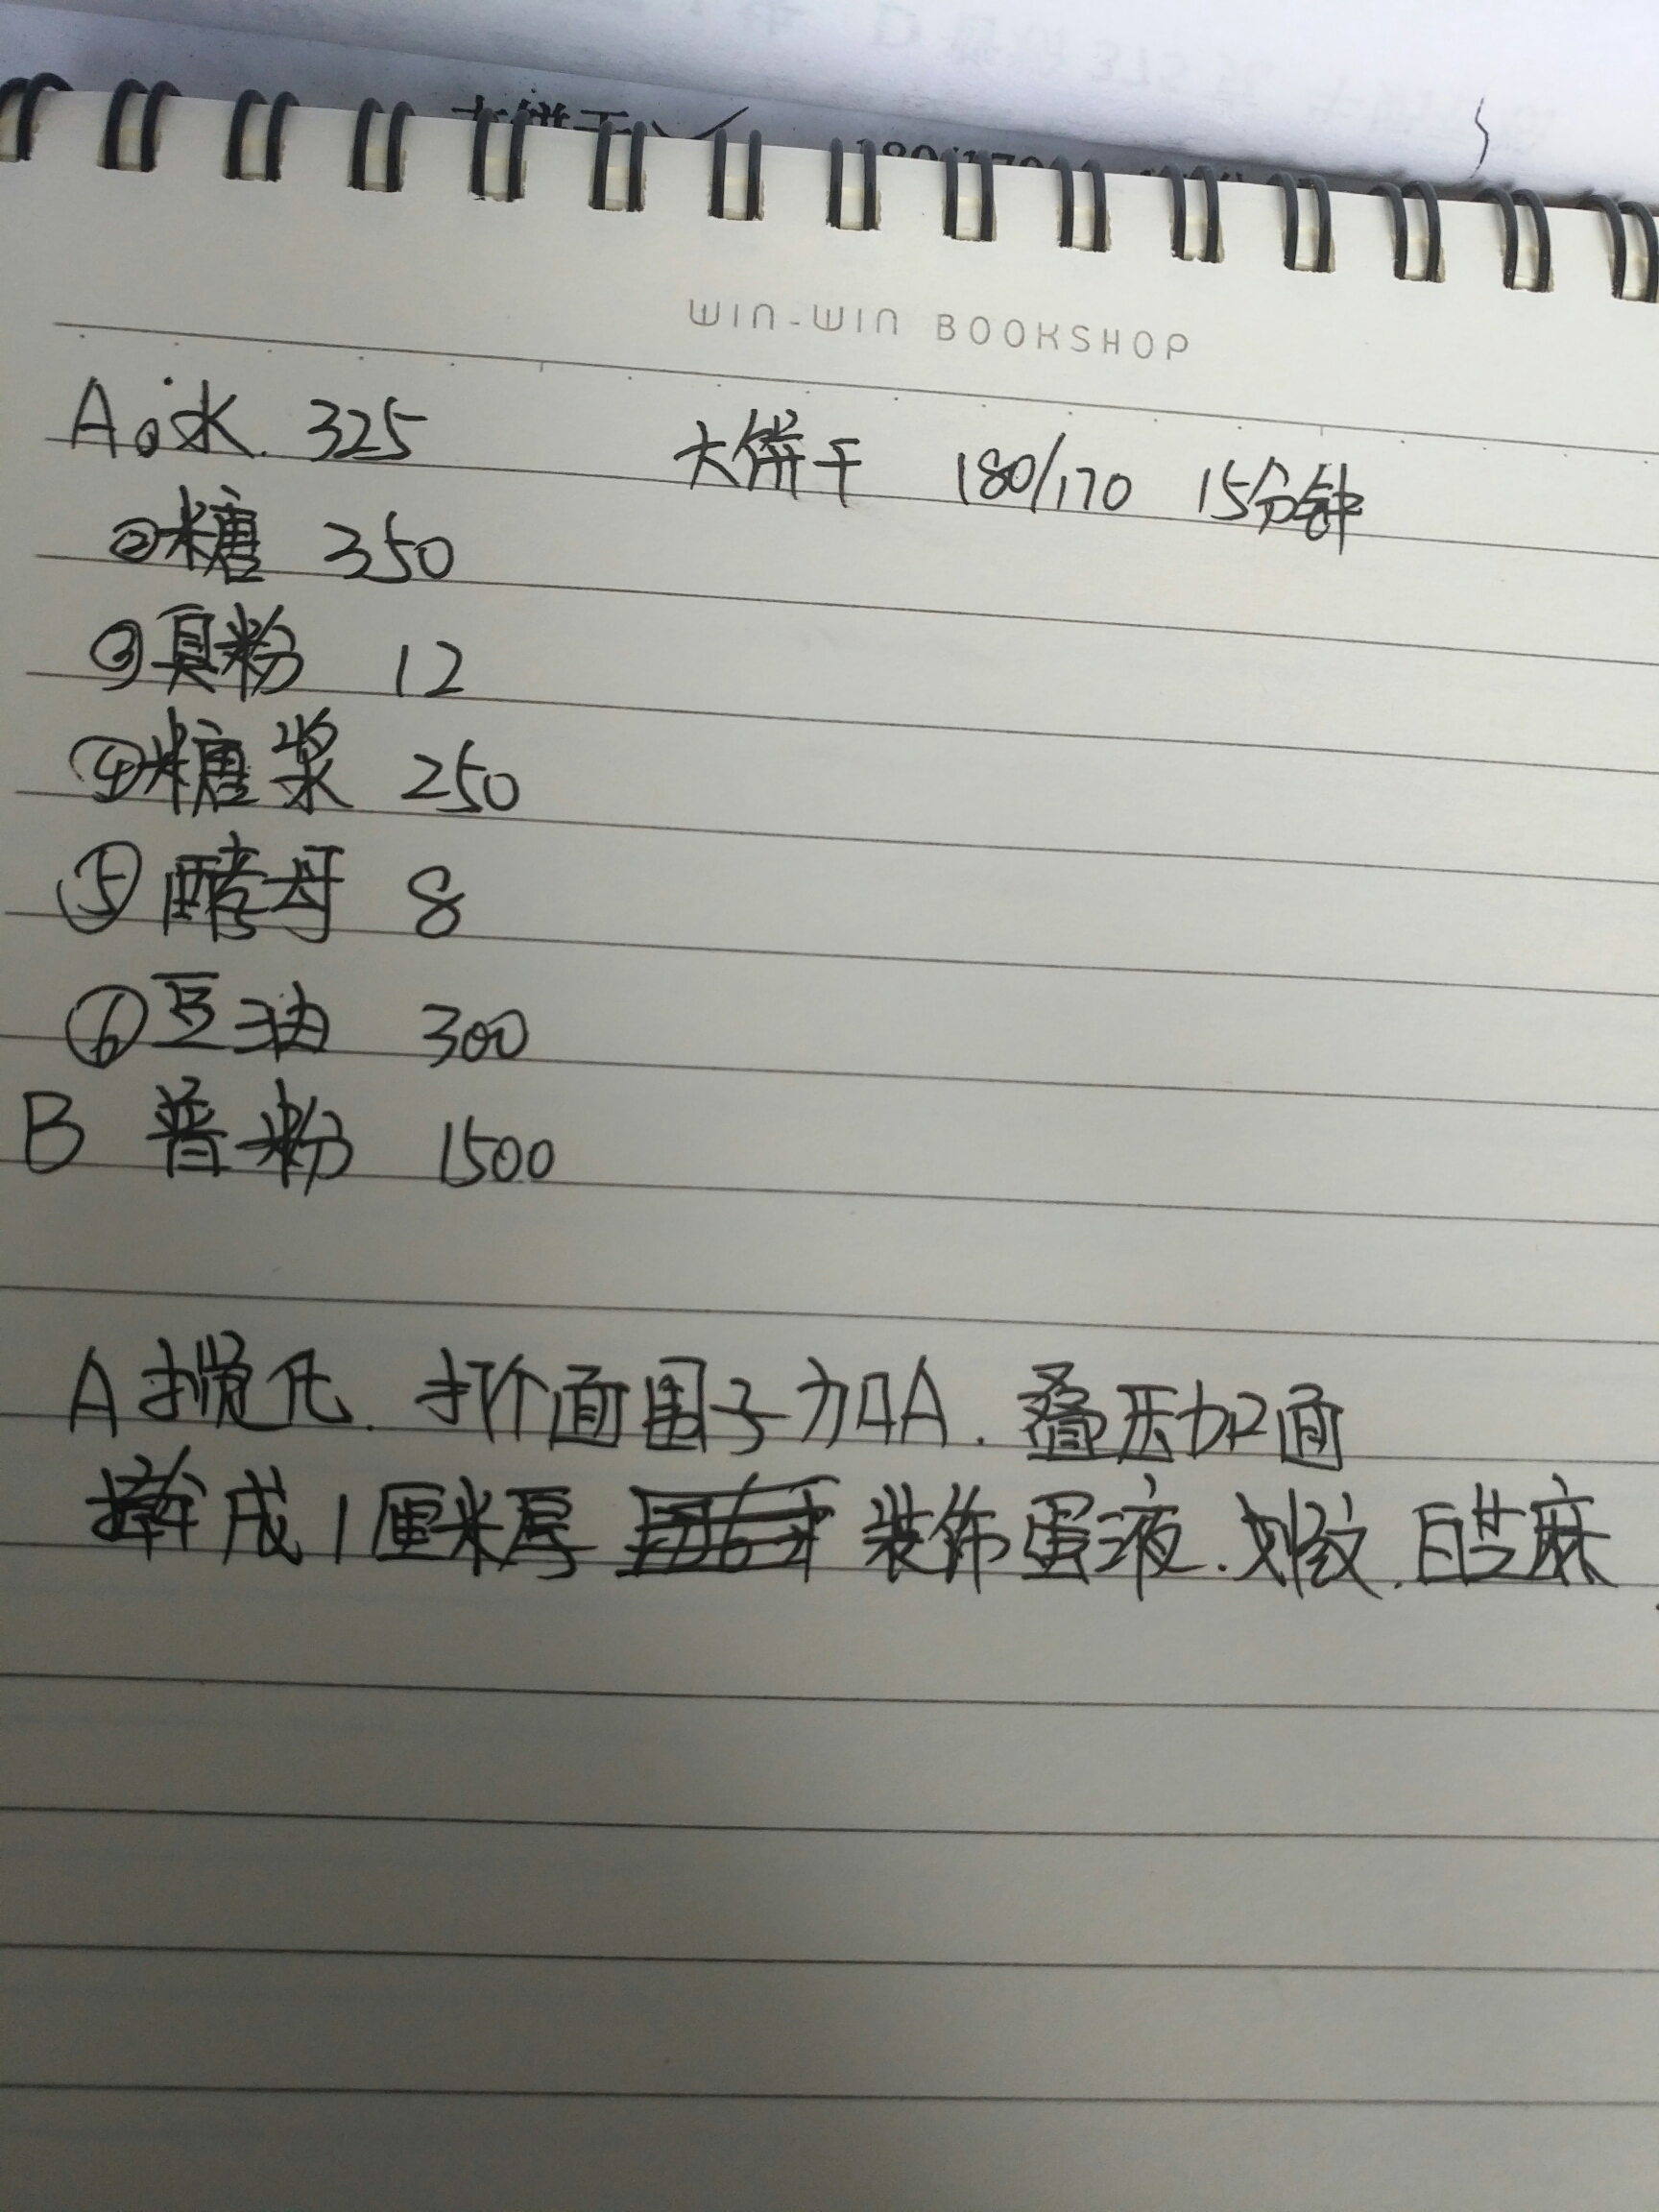 大饼干
WIN-WIN BOOKSHOP
A①水. 325 大饼干 180/170 15分钟
②糖 350
③臭粉 12
④糖浆 250
⑤酵母 8
⑥豆油 300
B 普粉 1500
A搅化. 开个面围子加A. 叠压加面
擀成1厘米厚 装饰蛋液. 划纹. 白芝麻